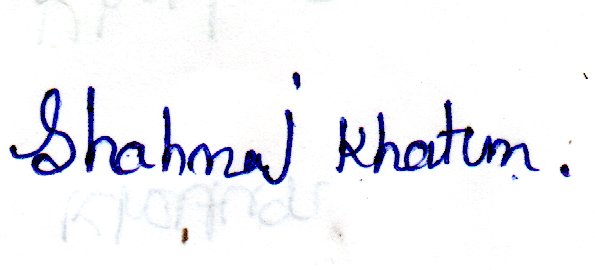 Shahnaj Khatun.